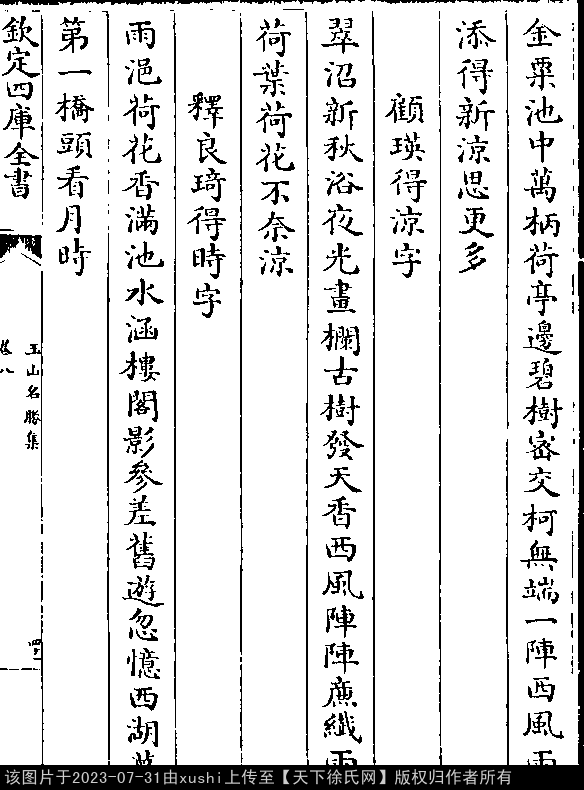 金粟池中萬柄荷亭邊碧樹宻交柯無端一陣西風雨
添得新涼思更多
顧瑛得涼字
翠沼新秋浴夜光畫欄古樹發天香西風陣陣簾纖雨
荷葉荷花不奈涼
釋良琦得時字
雨浥荷花香滿池水涵樓閣影參差舊遊忽憶西湖
第一橋頭看月時
欽定四庫全書
玉山名勝集
卷八
該图片于2023-07-31由xushi上传至【天下徐氏网】版权归作者所有